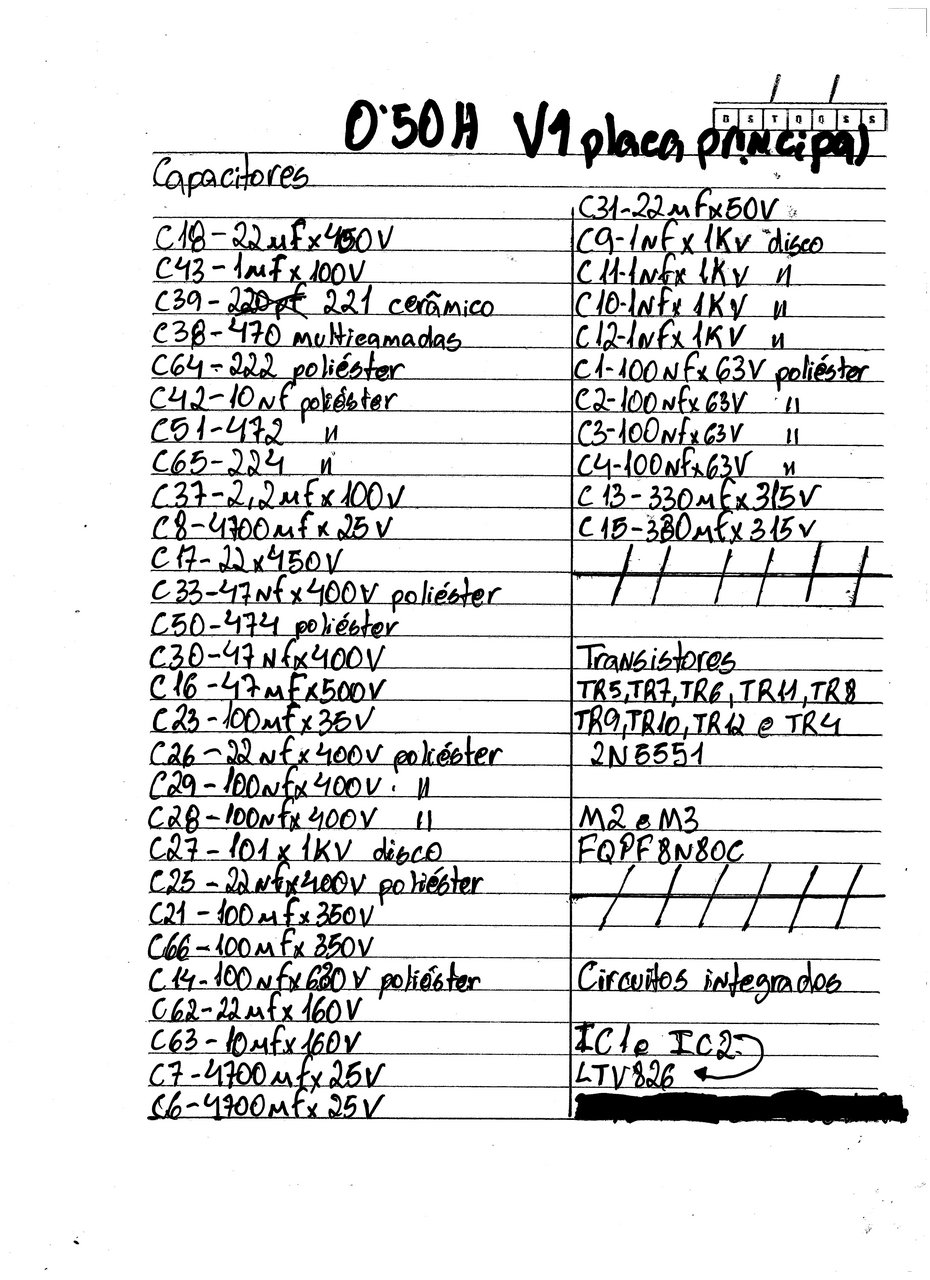 0'50H V1 placa principal
D S T Q Q S S
Capacitores
C18-22µf x 450V
C43-1µf x 100V
C39-220pf 221 cerâmico
C38-470 multicamadas
C64-222 poliéster
C42-10Nf poliéster
C51-472 "
C65-224 "
C37-2,2µf x 100V
C8-4700µf x 25V
C17-22x450V
C33-47Nf x 400V poliéster
C50-474 poliéster
C30-47Nf x 400V
C16-47µf x 500V
C23-100µf x 35V
C26-22Nf x 400V poliéster
C29-100Nf x 400V "
C28-100Nf x 400V "
C27-101 x 1KV disco
C25-22Nf x 400V poliéster
C21-100µf x 350V
C66-100µf x 350V
C14-100Nf x 630V poliéster
C62-22µf x 160V
C63-10µf x 160V
C7-4700µf x 25V
C6-4700µf x 25V
C31-22µf x 50V
C9-1Nf x 1KV disco
C11-1Nf x 1KV "
C10-1Nf x 1KV "
C12-1Nf x 1KV "
C1-100Nf x 63V poliéster
C2-100Nf x 63V "
C3-100Nf x 63V "
C4-100Nf x 63V "
C13-330µf x 315V
C15-330µf x 315V
Transistores
TR5,TR7,TR6,TR11,TR8
TR9,TR10,TR12 e TR4
2N5551
M2 e M3
FQPF8N80C
Circuitos integrados
IC1 e IC2
LTV826